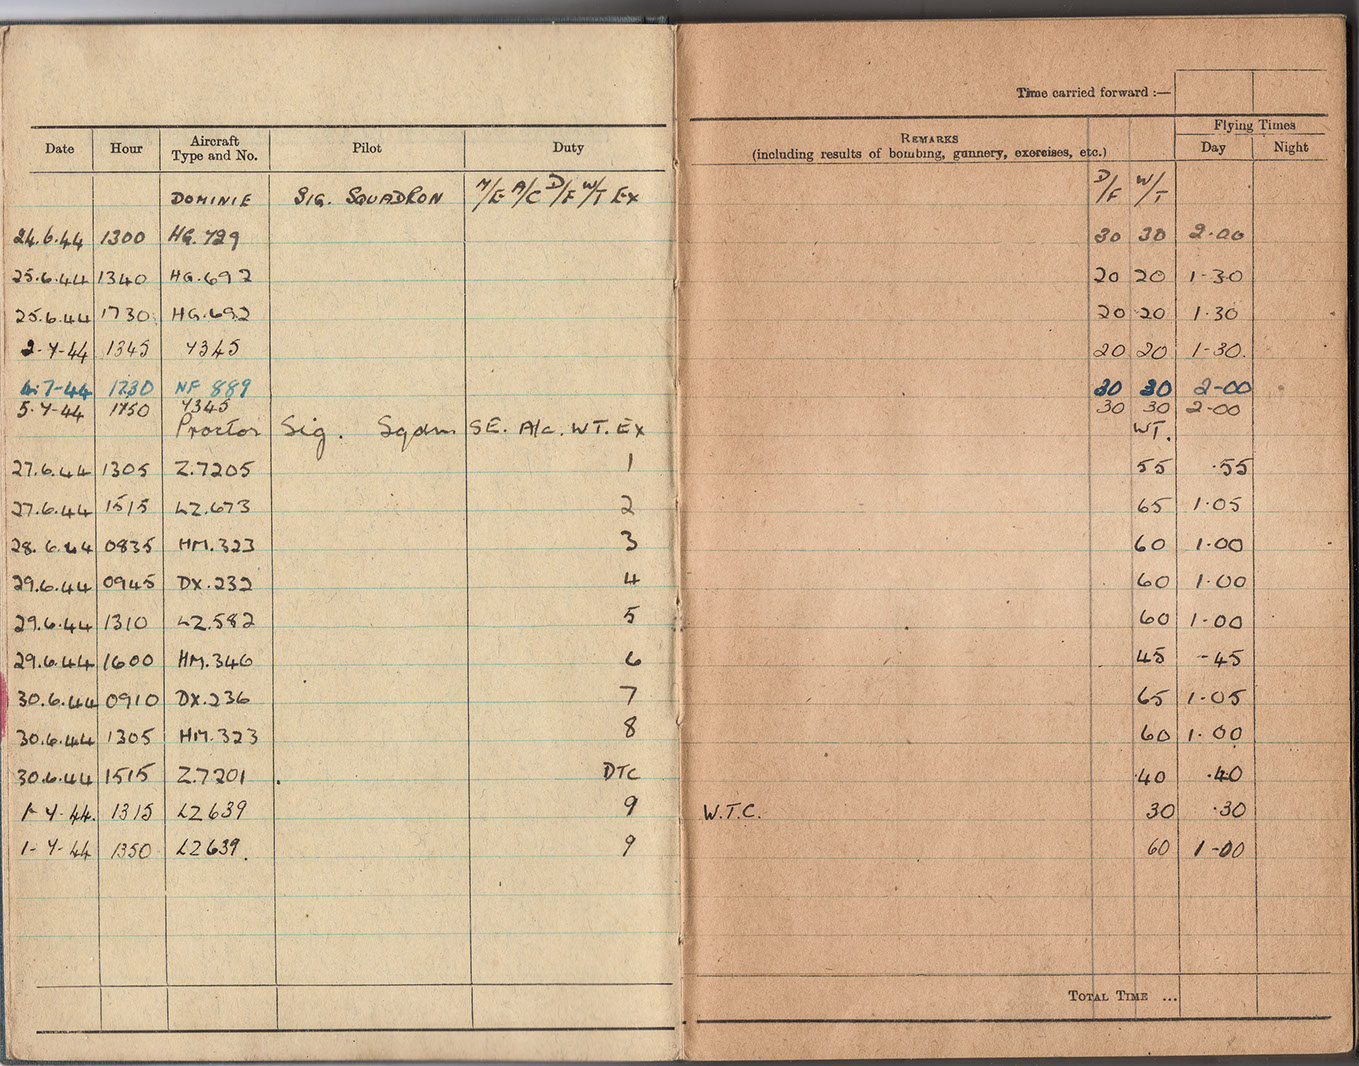 Time carried forward :—
Date Hour Aircraft Type and No. Pilot Duty REMARKS (including results of bombing, gunnery, exercises, etc.) Flying Times Day Night
DOMINIE SIG. SQUADRON M/E A/C D/F W/T EX D/F W/T
24.6.44 1300 HG.729 30 30 2.00
25.6.44 1340 HG.692 20 20 1-30
25.6.44 1730 HG.692 20 20 1.30
2-7-44 1345 7345 20 20 1-30.
4.7-44 1230 NF 889 30 30 2-00
5.7-44 1750 7345 30 30 2-00
Proctor Sig. Sqdrn SE. A/c. WT. Ex WT.
27.6.44 1305 Z.7205 1 55 .55
27.6.44 1515 LZ.673 2 65 1.05
28.6.44 0835 HM.323 3 60 1.00
29.6.44 0945 DX.232 4 60 1.00
29.6.44 1310 LZ.582 5 60 1-00
29.6.44 1600 HM.346 6 45 -45
30.6.44 0910 DX.236 7 65 1-05
30.6.44 1305 HM.323 8 60 1.00
30.6.44 1515 Z.7201 DTC 40 .40
1-7-44. 1315 LZ639 9 W.T.C. 30 .30
1-7-44 1350 LZ639. 9 60 1-00
TOTAL TIME ...